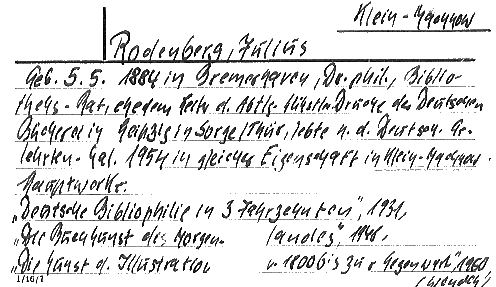 Klein-Machnow
Rodenberg, Julius
Geb. 5.5. 1884 in Bremerhaven, Dr. phil., Biblio-
theks-Rat, ehedem Leiter d. Abtlg. Künstler. Drucke der Deutschen
Bücherei in Leipzig in Sorge/Thür., lebte n. d. Deutsch. Ge-
lehrten-Kal. 1954 in gleicher Eigenschaft in Klein-Machnow.
Hauptwerke:
„Deutsche Bibliophilie in 3 Jahrzehnten", 1931,
„Die Buchkunst des Morgenlandes", 1948,
„Die Kunst d. Illustration v. 1800 bis zur Gegenwart" 1960
1/16/1